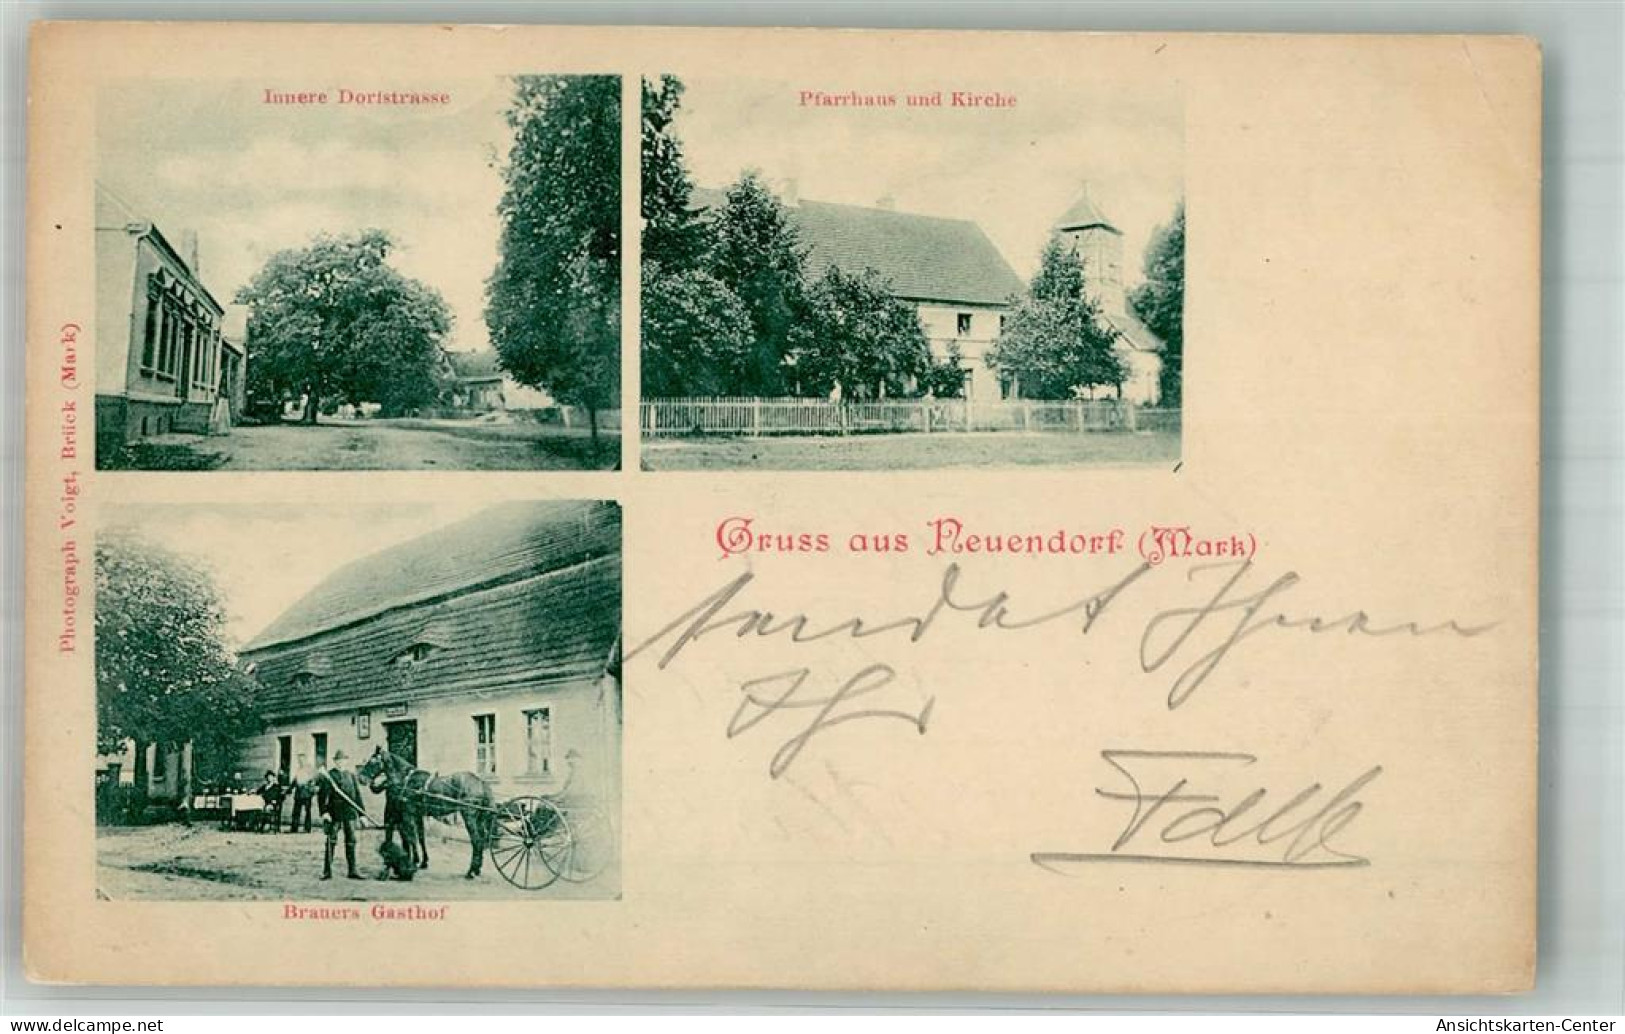 Innere Dorfstrasse
Pfarrhaus und Kirche
Photograph Voigt, Brück (Mark)
Gruss aus Neuendorf (Mark)
sendet Ihnen
Ihr
Brauers Gasthof
delcampe.net
Ansichtskarten-Center